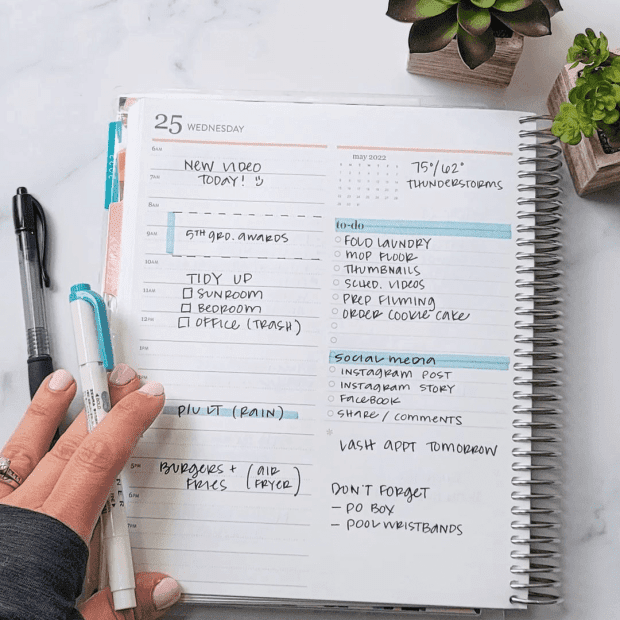 25 WEDNESDAY
6AM
7AM
8AM
9AM
10AM
11AM
12PM
1PM
2PM
3PM
4PM
5PM
6PM
7PM
NEW VIDEO
TODAY!
5TH GRD. AWARDS
TIDY UP
SUNROOM
BEDROOM
OFFICE (TRASH)
P/U LT (RAIN)
BURGERS + (AIR
FRIES FRYER)
may 2022
75°/62°
THUNDERSTORMS
to-do
FOLD LAUNDRY
MOP FLOOR
THUMBNAILS
SCHD. VIDEOS
PREP FILMING
ORDER COOKIE CAKE
SOCIAL MEDIA
INSTAGRAM POST
INSTAGRAM STORY
FACEBOOK
SHARE / COMMENTS
LASH APPT TOMORROW
DON'T FORGET
- PO BOX
- POOL WRISTBANDS
2022